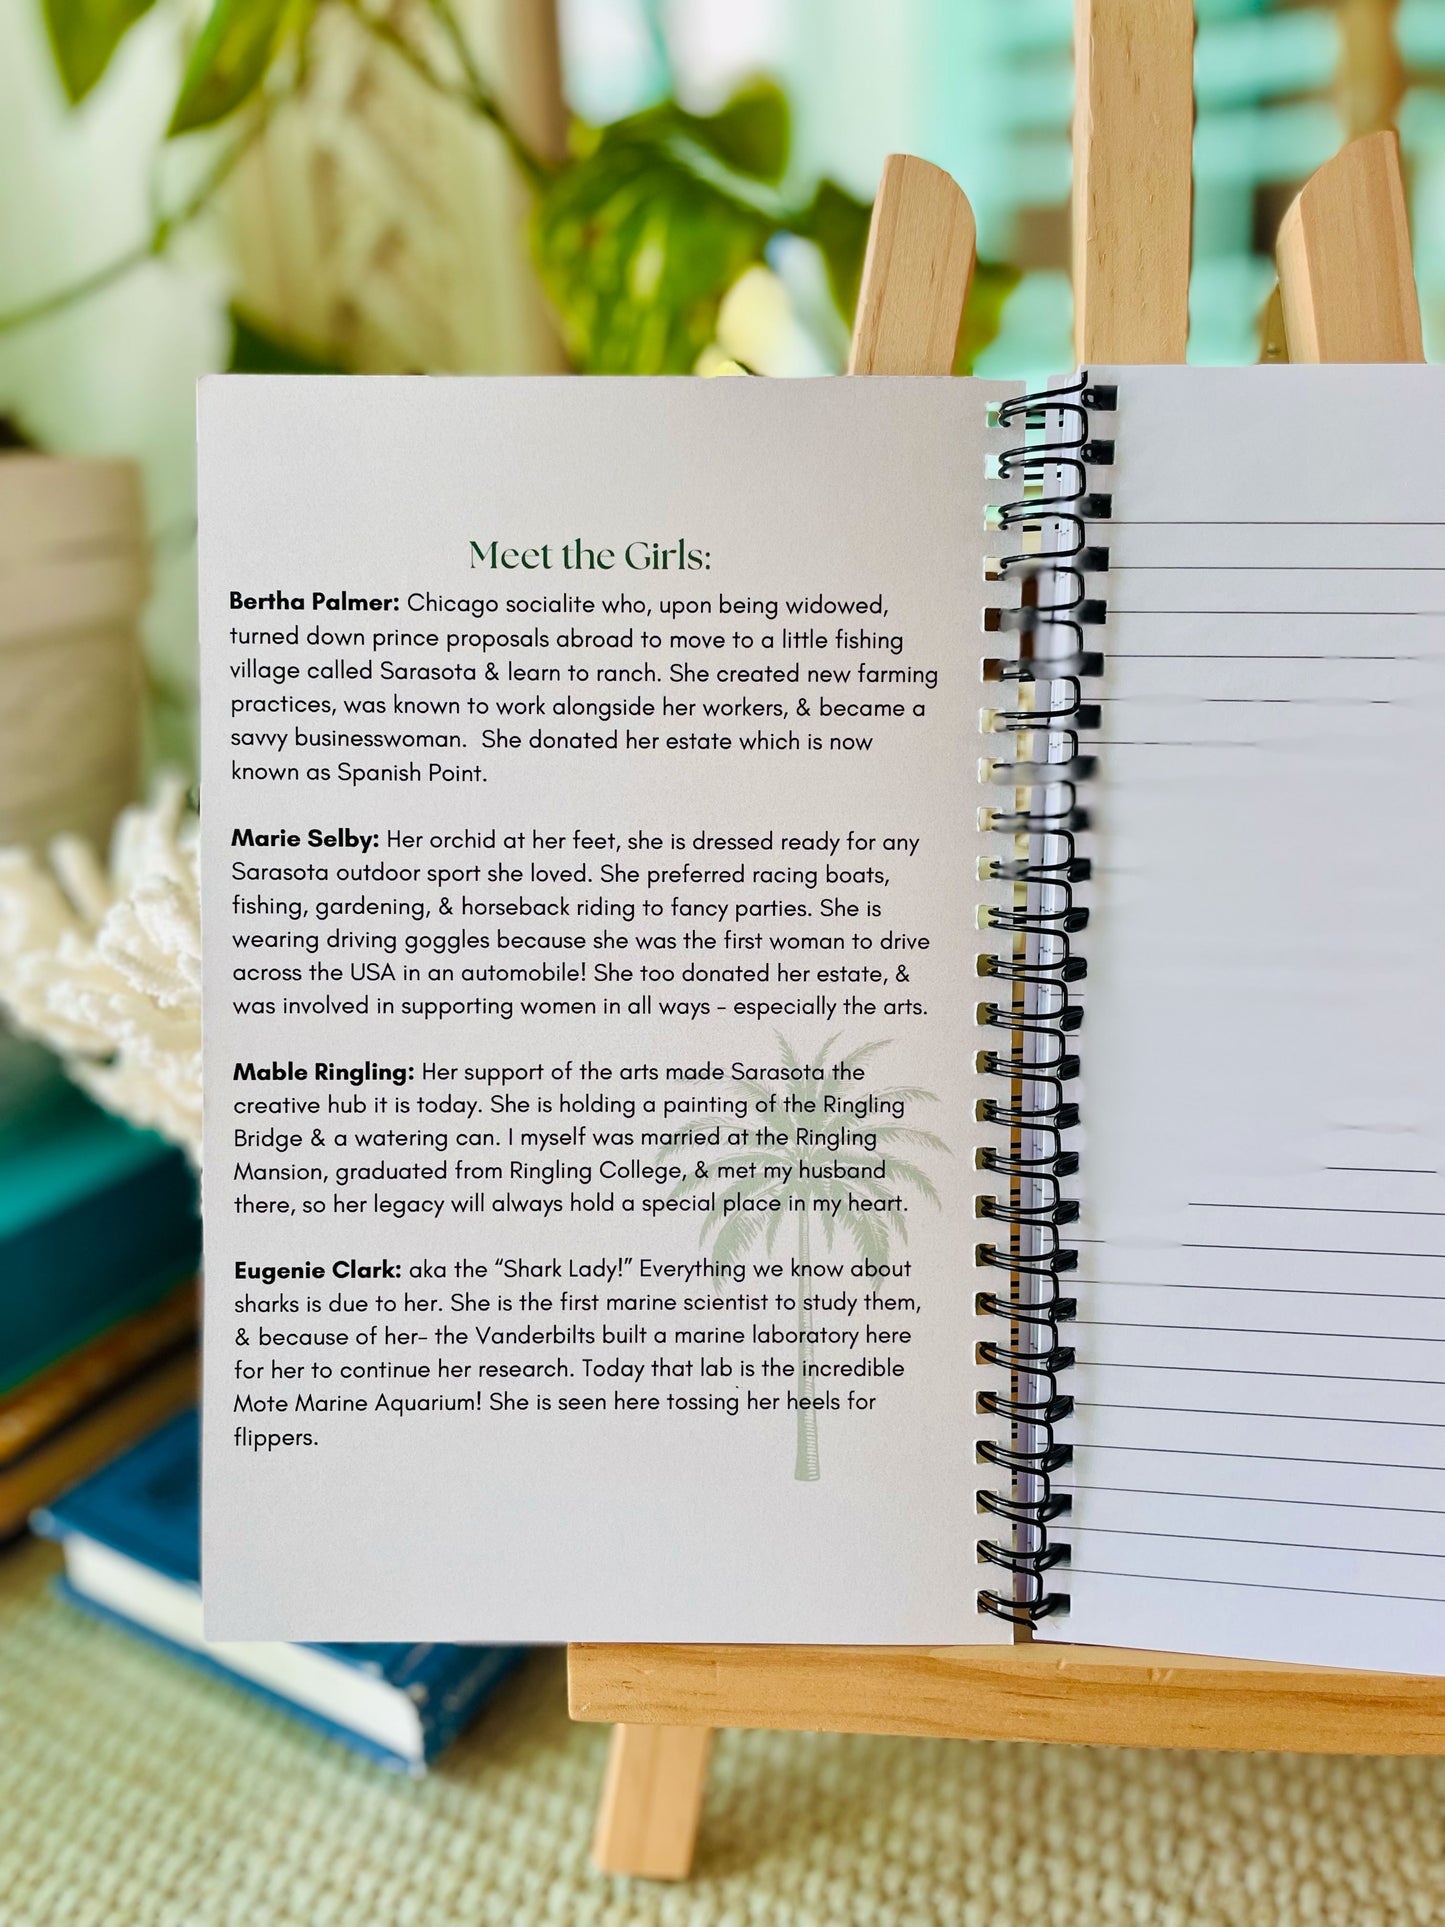 Meet the Girls:
Bertha Palmer: Chicago socialite who, upon being widowed,
turned down prince proposals abroad to move to a little fishing
village called Sarasota & learn to ranch. She created new farming
practices, was known to work alongside her workers, & became a
savvy businesswoman.  She donated her estate which is now
known as Spanish Point.
Marie Selby: Her orchid at her feet, she is dressed ready for any
Sarasota outdoor sport she loved. She preferred racing boats,
fishing, gardening, & horseback riding to fancy parties. She is
wearing driving goggles because she was the first woman to drive
across the USA in an automobile! She too donated her estate, &
was involved in supporting women in all ways - especially the arts.
Mable Ringling: Her support of the arts made Sarasota the
creative hub it is today. She is holding a painting of the Ringling
Bridge & a watering can. I myself was married at the Ringling
Mansion, graduated from Ringling College, & met my husband
there, so her legacy will always hold a special place in my heart.
Eugenie Clark: aka the “Shark Lady!” Everything we know about
sharks is due to her. She is the first marine scientist to study them,
& because of her- the Vanderbilts built a marine laboratory here
for her to continue her research. Today that lab is the incredible
Mote Marine Aquarium! She is seen here tossing her heels for
flippers.